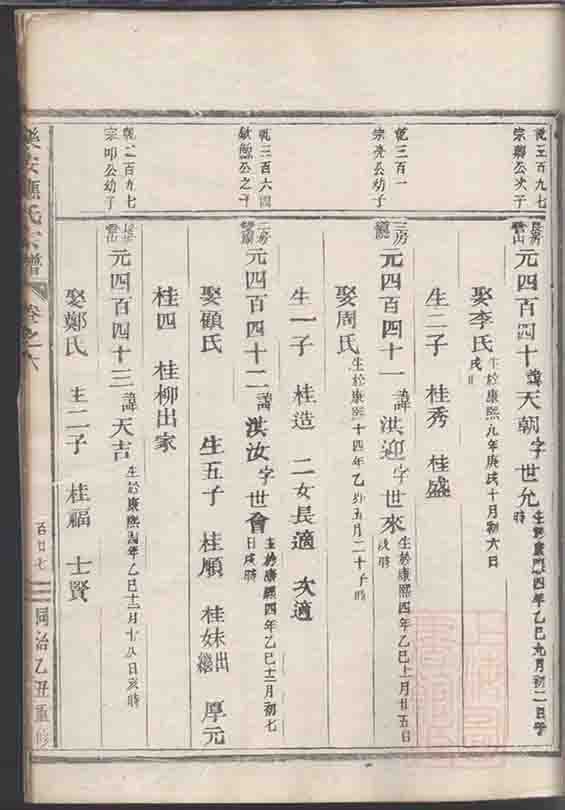 乾三百九七
宗 公次子
長房
山
元四百四十諱天朝字世允生於康熙四年乙巳九月初二日子
時
娶李氏生於康熙九年庚戌十月初六日
戌時
生二子 桂秀 桂盛
乾三百一
宗亮公幼子
三房
元四百四十一諱洪迎字世來生於康熙四年乙巳十一月廿五日
戌時
娶周氏生於康熙十四年乙卯五月二十子時
生一子 桂造 二女長適 次適
乾三百六四
公之子
二房
元四百四十二諱洪汝字世會生於康熙四年乙巳十二月初七
日戌時
娶顧氏 生五子 桂順 桂妹出繼 厚元
桂四 桂柳出家
乾二百九七
宗叩公幼子
長房
山
元四百四十三諱天吉生於康熙四年乙巳十二月十八日亥時
娶鄭氏 生二子 桂福 士賢
樂安 氏宗譜 卷之六 百廿七 同治乙丑重修